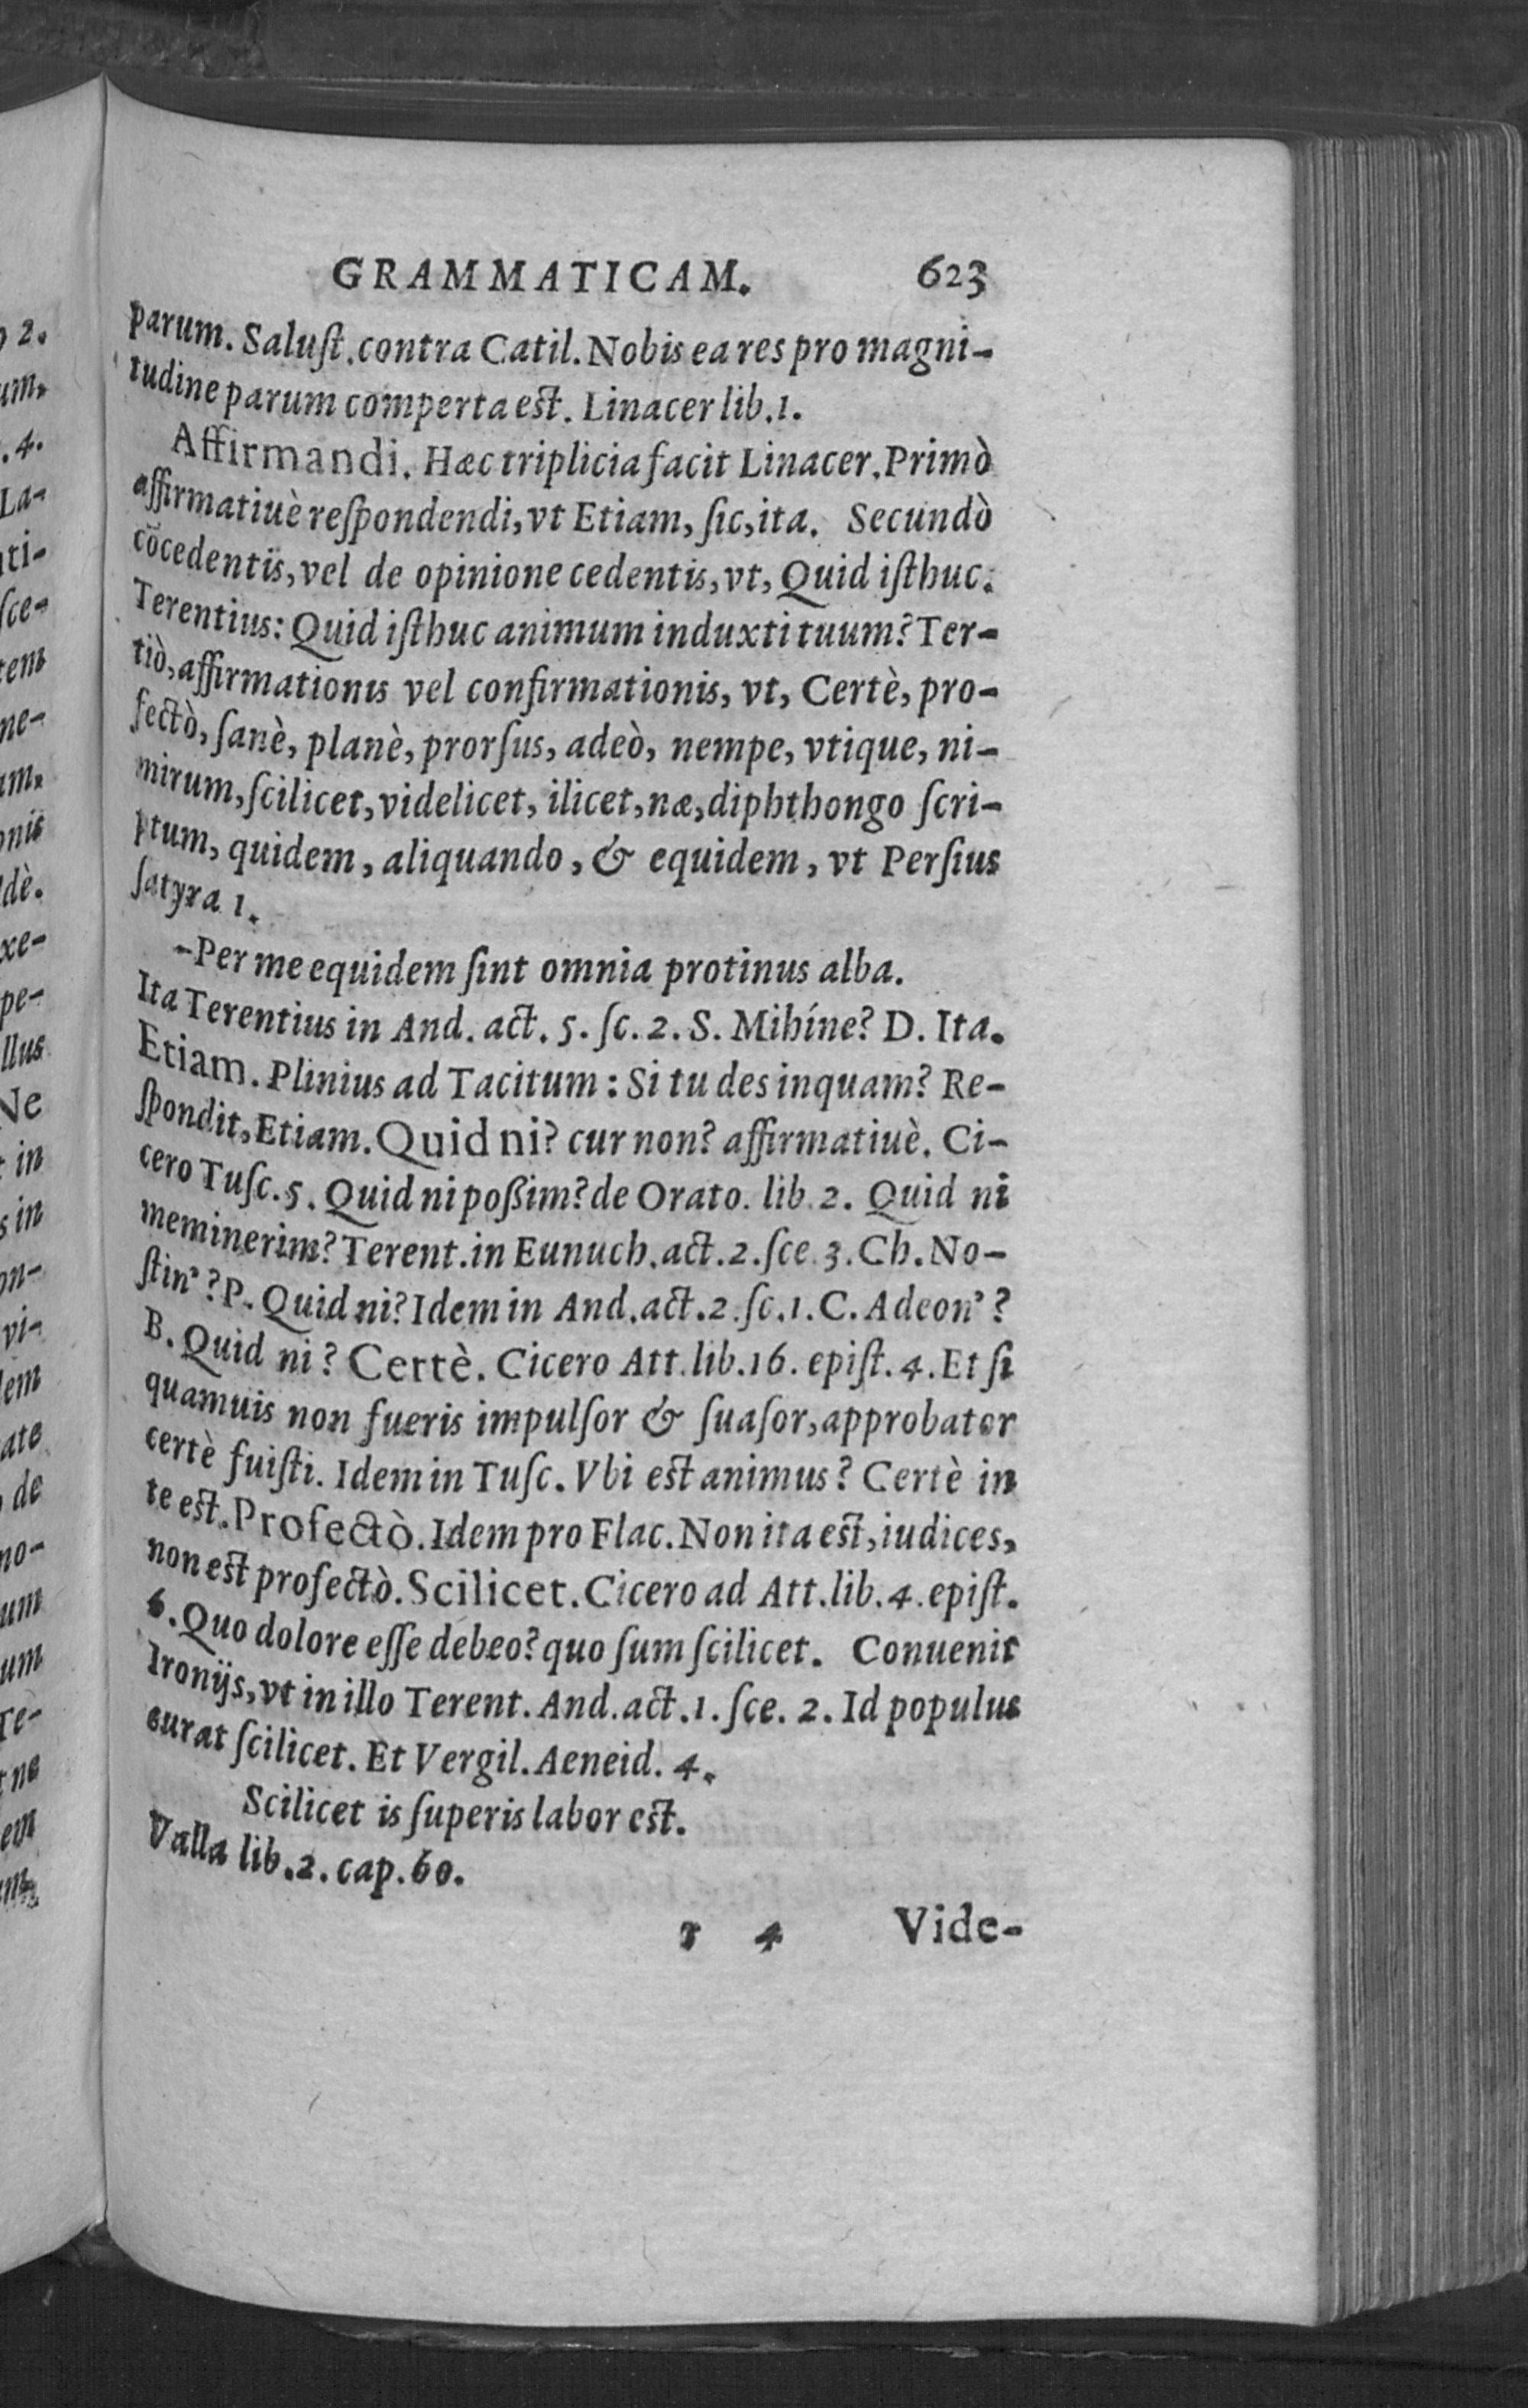 GRAMMATICAM. 623
parum. Saluſt. contra Catil. Nobis ea res pro magni-
tudine parum comperta est. Linacer lib. 1.
Affirmandi. Hæc triplicia facit Linacer. Primò
affirmatiuè reſpondendi, vt Etiam, ſic, ita. Secundò
cõcedentis, vel de opinione cedentis, vt, Quid iſthuc.
Terentius: Quid iſthuc animum induxti tuum? Ter-
tiò, affirmationis vel confirmationis, vt, Certè, pro-
fectò, ſanè, planè, prorſus, adeò, nempe, vtique, ni-
mirum, ſcilicet, videlicet, ilicet, næ, diphthongo ſcri-
ptum, quidem, aliquando, & equidem, vt Perſius
ſatyra 1.
-Per me equidem ſint omnia protinus alba.
Ita Terentius in And. act. 5. ſc. 2. S. Mihíne? D. Ita.
Etiam. Plinius ad Tacitum: Si tu des inquam? Re-
ſpondit, Etiam. Quid ni? cur non? affirmatiuè. Ci-
cero Tuſc. 5. Quid ni poßim? de Orato. lib. 2. Quid ni
meminerim? Terent. in Eunuch. act. 2. ſce. 3. Ch. No-
ſtin'? P. Quid ni? Idem in And. act. 2. ſc. 1. C. Adeon'?
B. Quid ni? Certè. Cicero Att. lib. 16. epiſt. 4. Et ſi
quamuis non fueris impulſor & ſuaſor, approbator
certè fuiſti. Idem in Tuſc. Vbi est animus? Certè in
te est. Profectò. Idem pro Flac. Non ita est, iudices,
non est profectò. Scilicet. Cicero ad Att. lib. 4. epiſt.
6. Quo dolore eſſe debeo? quo ſum ſcilicet. Conuenit
Ironijs, vt in illo Terent. And. act. 1. ſce. 2. Id populus
curat ſcilicet. Et Vergil. Aeneid. 4.
Scilicet is ſuperis labor est.
Valla lib. 2. cap. 60.
r 4 Vide-